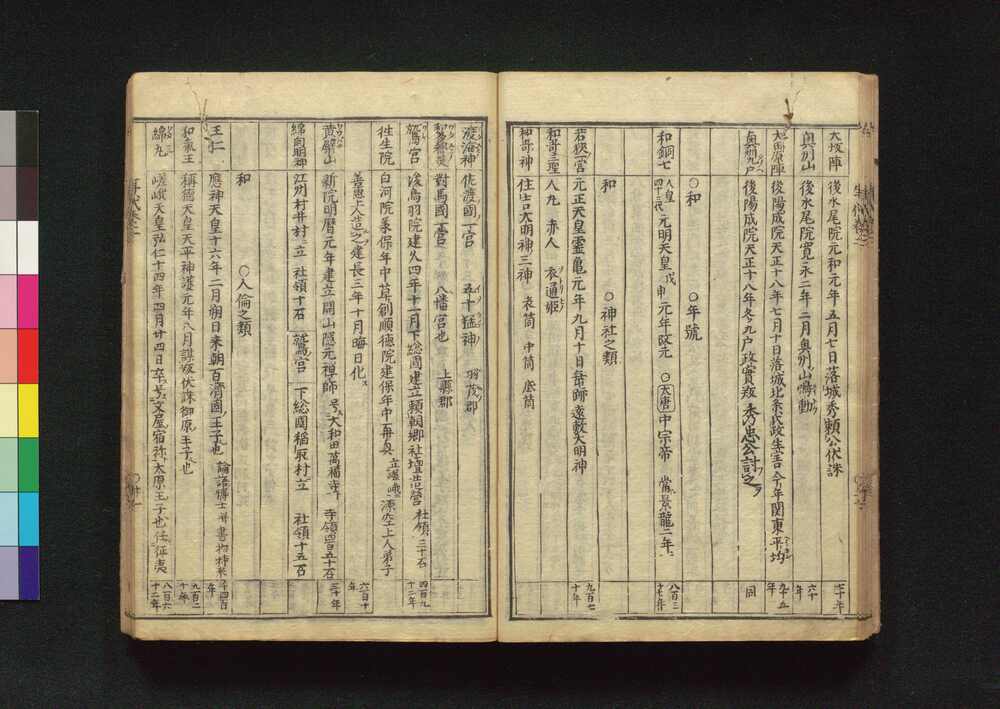 大坂陣 後水尾院元和元年五月七日落城秀頼公伏誅 七十年
奥州山 後水尾院寛永二年二月奥州山鳴動 六十年
小田原陣 後陽成院天正十八年七月十日落城北条氏政生害今年関東平均 九十五年
奥州九戸 後陽成院天正十八年冬九戸政實叛 秀忠公討之 同
和 ○年號
和銅七 人皇四十三代元明天皇戊申元年改元 ○大唐中宗帝 當景龍二年 八百二十七年
和 ○神社之類
若狹一宮 元正天皇霊亀元年九月十日垂跡遠敷大明神 九百七十年
和哥三聖 人丸 赤人 衣通姫
和哥神 住吉大明神三神 表筒 中筒 底筒
渡海神 佐渡國一宮 五十猛神 羽茂郡
對馬國一宮 八幡宮也 上縣郡
鷲宮 後鳥羽院建久四年十一月下総國建立頼朝郷社壇造營 社領三十石 四百九十二年
往生院 白河院承保年中草創順德院建保年中再興 立嵯峨源空上人弟子
善恵上人造之建長三年十月晦日化
黄檗山 新院明暦元年建立開山隠元禅師 号大和田萬福寺 寺領四百五十石 三十年
綿向明神 江州村井村立 社領十石 鷲宮 下総國稲取村立 社領十五石
和 ○人倫之類
王仁 應神天皇十六年二月朔日来朝百濟國王子也 論語博士
和氣王 稱德天皇天平神護元年八月謀叛伏誅御原王子也 九百二十年
綿九 嵯峨天皇弘仁十四年四月廿四日卒 文屋宿祢大原王子也任征夷 八百六十二年